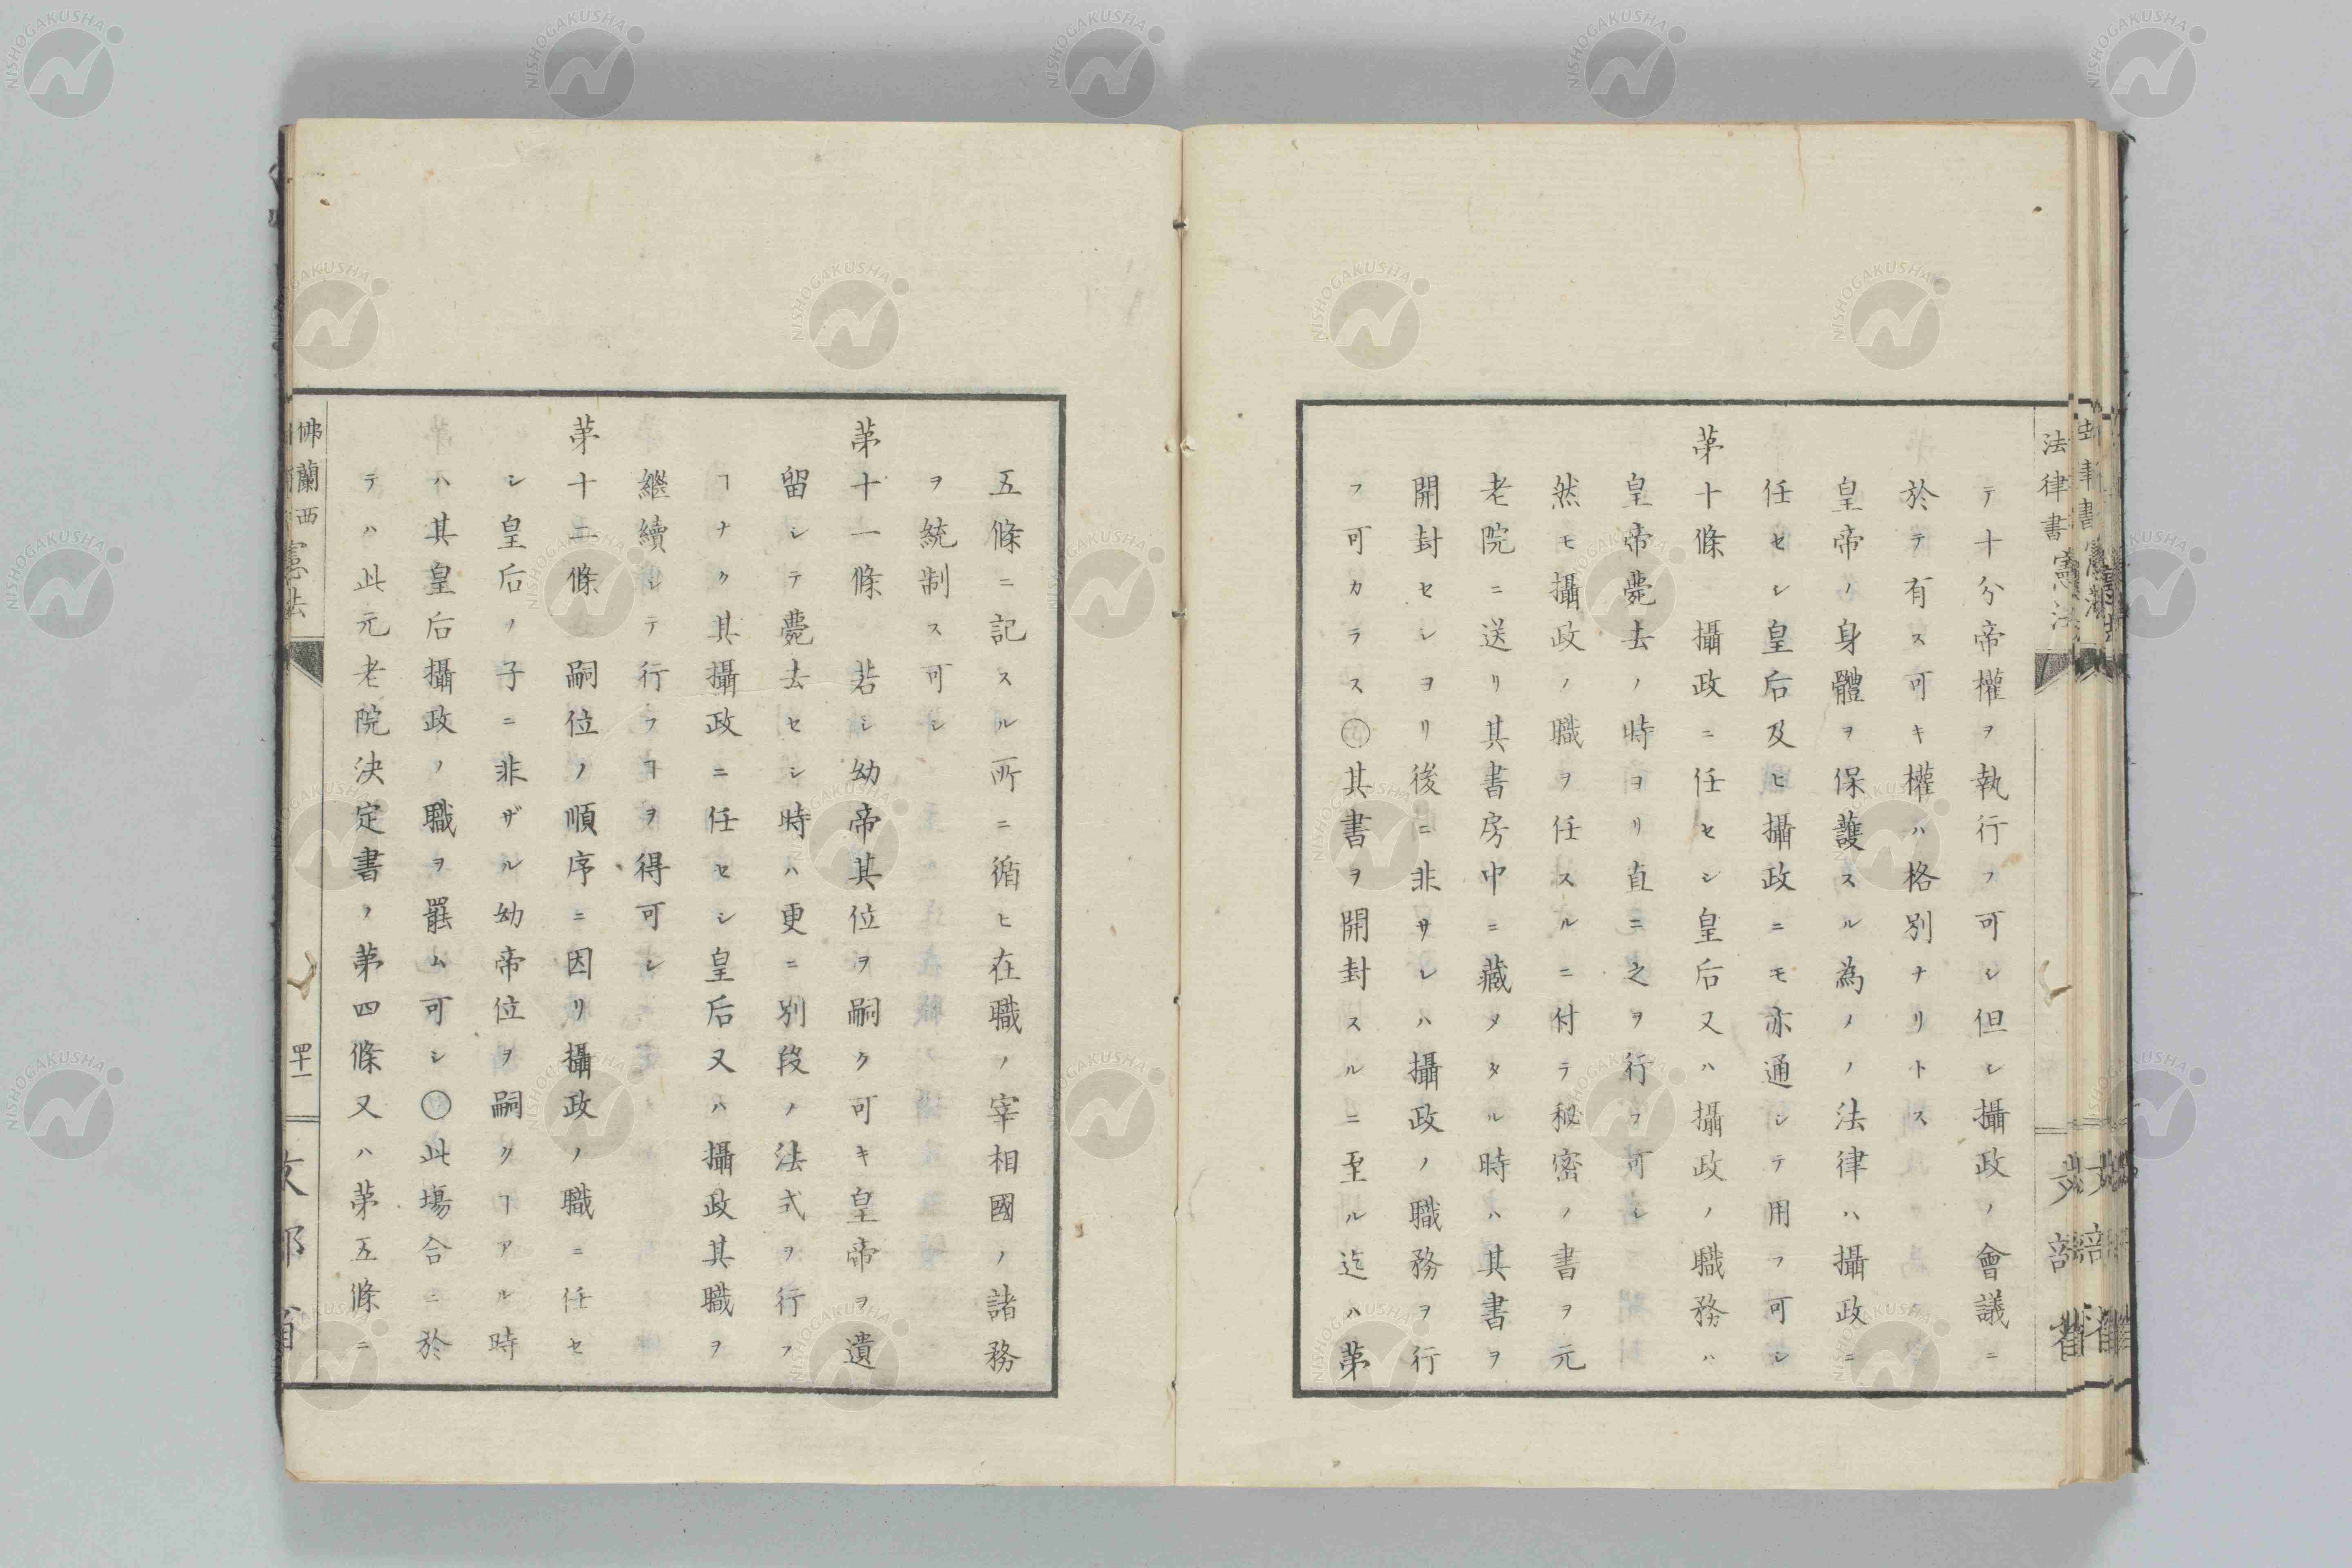 法律書 憲法
テ十分帝權ヲ執行フ可シ但シ攝政ノ會議ニ
於テ有ス可キ權ハ格別ナリトス
皇帝ノ身體ヲ保護スル為メノ法律ハ攝政ニ
任セシ皇后及ヒ攝政ニモ亦通シテ用フ可シ
第十條 攝政ニ任セシ皇后又ハ攝政ノ職務ハ
皇帝薨去ノ時ヨリ直ニ之ヲ行フ可シ
然モ攝政ノ職ヲ任スルニ付テ秘密ノ書ヲ元
老院ニ送リ其書房中ニ藏メタル時ハ其書ヲ
開封セシヨリ後ニ非サレハ攝政ノ職務ヲ行
フ可カラス〇其書ヲ開封スルニ至ル迄ハ第
五條ニ記スル所ニ循ヒ在職ノ宰相國ノ諸務
ヲ統制ス可シ
第十一條 若シ幼帝其位ヲ嗣ク可キ皇帝ヲ遺
留シテ薨去セシ時ハ更ニ別段ノ法式ヲ行フ
ヿナク其攝政ニ任セシ皇后又ハ攝政其職ヲ
繼續シテ行フヿヲ得可シ
第十二條 嗣位ノ順序ニ因リ攝政ノ職ニ任セ
シ皇后ノ子ニ非ザル幼帝位ヲ嗣クヿアル時
ハ其皇后攝政ノ職ヲ罷ム可シ〇此塲合ニ於
テハ此元老院決定書ノ第四條又ハ第五條ニ
佛蘭西憲法
四十一
文部省
NISHOGAKUSHA